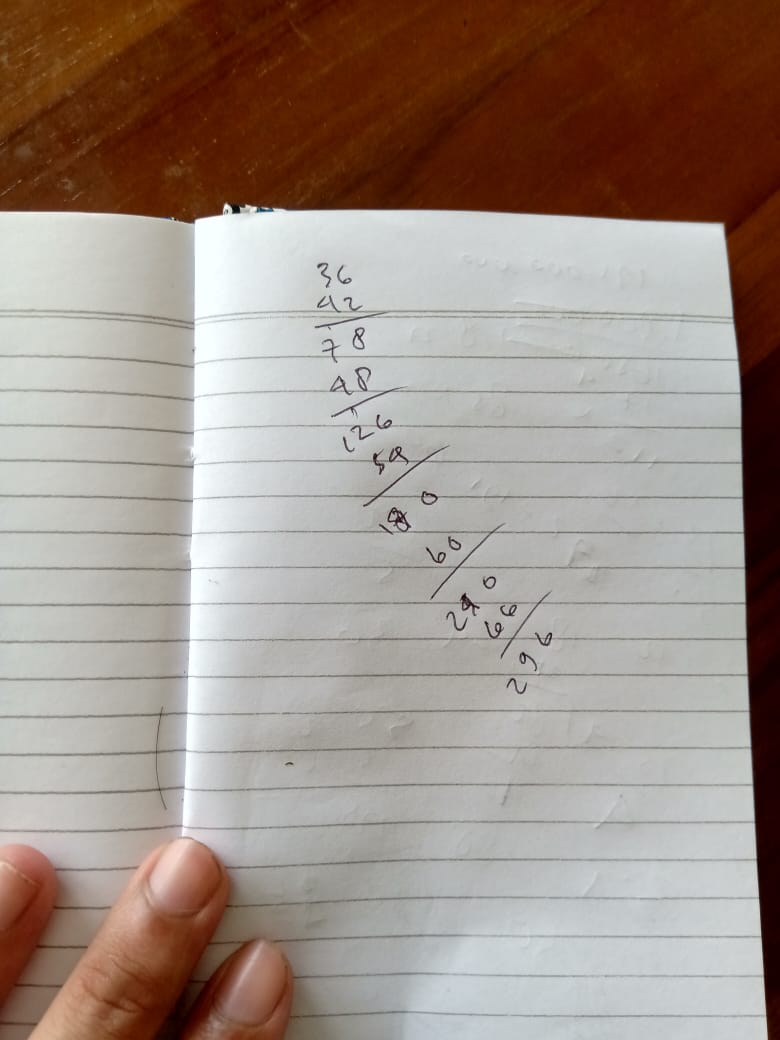 36
42
78
48
126
54
180
60
240
66
296